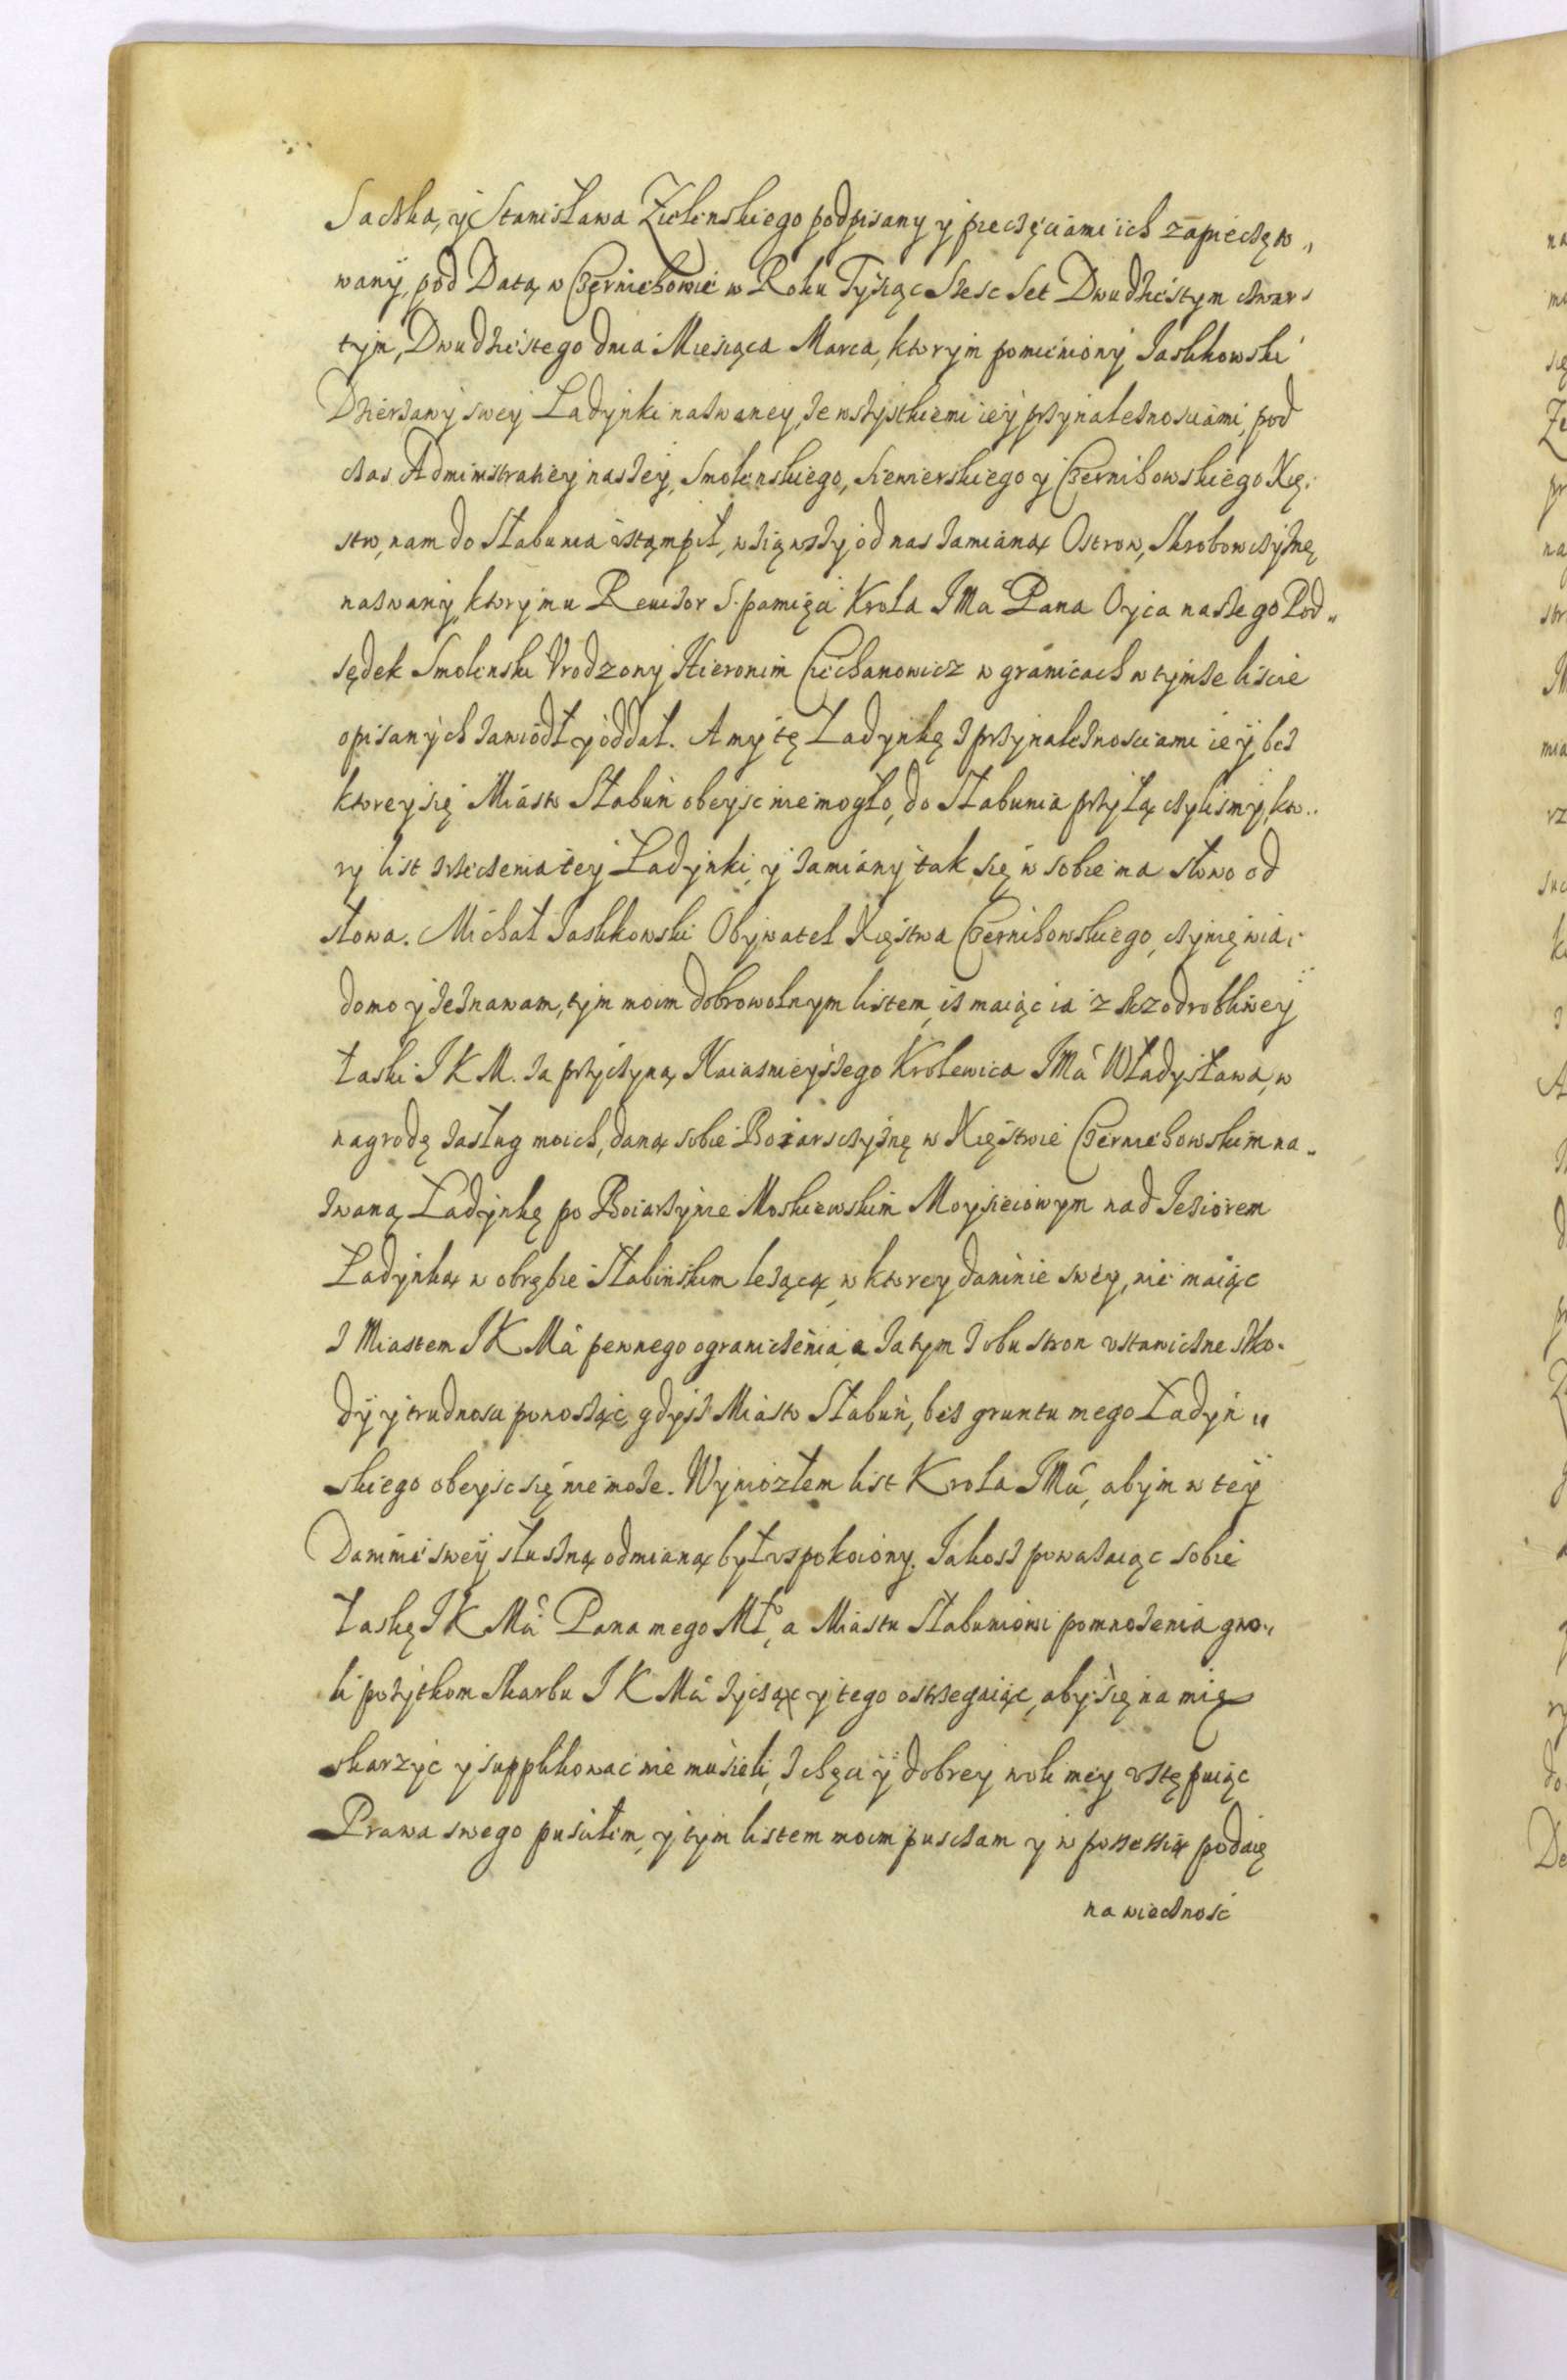 Saczka, y Stanisława Zielenskiego podpisany y pieczęciami ich zapieczęto„
wany, pod Datą w Czerniehowie w Roku Tysiąc Szesc Set Dwudziestym czwar„
tym, Dwudziestego dnia Miesiąca Marca, ktorym pomieniony Jaszkowski
Dzierzawy swey Ladynki nazwaney, ze wszystkiemi iey przynaleznosciami, pod
czas Administratiey naszey, Smolenskiego, Siewierskiego y Czernihowskiego Xię„
stw, nam do Słabunia vstąmpił, wziąwszy od nas zamianą Ostrow, Skrobowczyznę
nazwany, ktorymu Reuizor S. pamięci Krola JMa Pana Oyca naszego Pod„
sędek Smolenski Vrodzony Hieronim Ciechanowicz w granicach w tymze liscie
opisanych zawiodł y oddał. A my tę Ladynkę z przynaleznosciami iey bez
ktorey się Miasto Słabun obeysc nie mogło, do Słabunia przyłączylismy, kto„
ry list zrzeczenia tey Ladynki, y zamiany tak się w sobie ma słowo od
słowa. Michał Jaszkowski Obywatel Xięstwa Czernihowskiego, czynię wia„
domo y zeznawam, tym moim dobrowolnym listem, isz maiąc ia z szczodrobliwey
łaski J K M. za przyczyną Naiasnieyszego Krolewica JMci Władysława, w
nagrodę zasług moich, daną sobie Boiarszczyznę w Xięstwie Czerniehowskim na„
zwaną Ladynkę po Boiarzynie Moskiewskim Moysieiowym nad Jeziorem
Ladynką w obrębie Słabinskim lezącą, w ktorey daninie swey, nie maiąc
z Miastem J K Mci pewnego ograniczenia, a zatym z obu stron vstawiczne szko„
dy y trudnosci ponosząc, gdysz Miasto Słabun, bez gruntu mego Ladyn„
skiego obeysc się nie moze. Wyniozłem list Krola JMci, abym w tey
Daninie swey słuszną odmianą był vspokoiony. Jakosz powazaiąc sobie
łaskę J K Mci Pana mego Mło, a Miastu Słabuniowi pomnozenia gwo„
li pozytkom Skarbu J K Mci zycząc y tego ostrzegaiąc, aby się na mię
skarzyc y supplikowac nie musieli, z chęci y dobrey woli mey vstępuiąc
Prawa swego puscilem, y tym listem moim puszczam y w possessią podaię
na wiecznosc